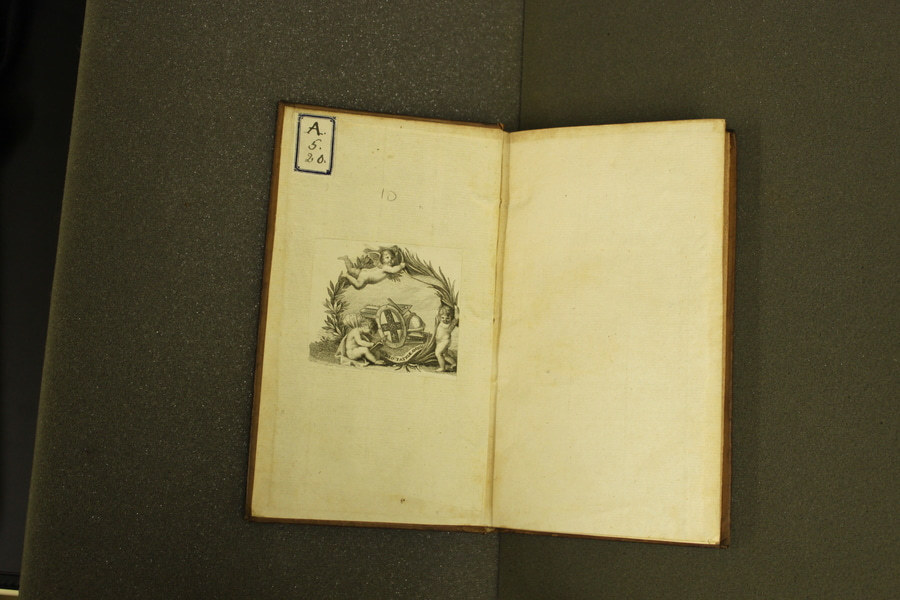 A.
5.
20.
10